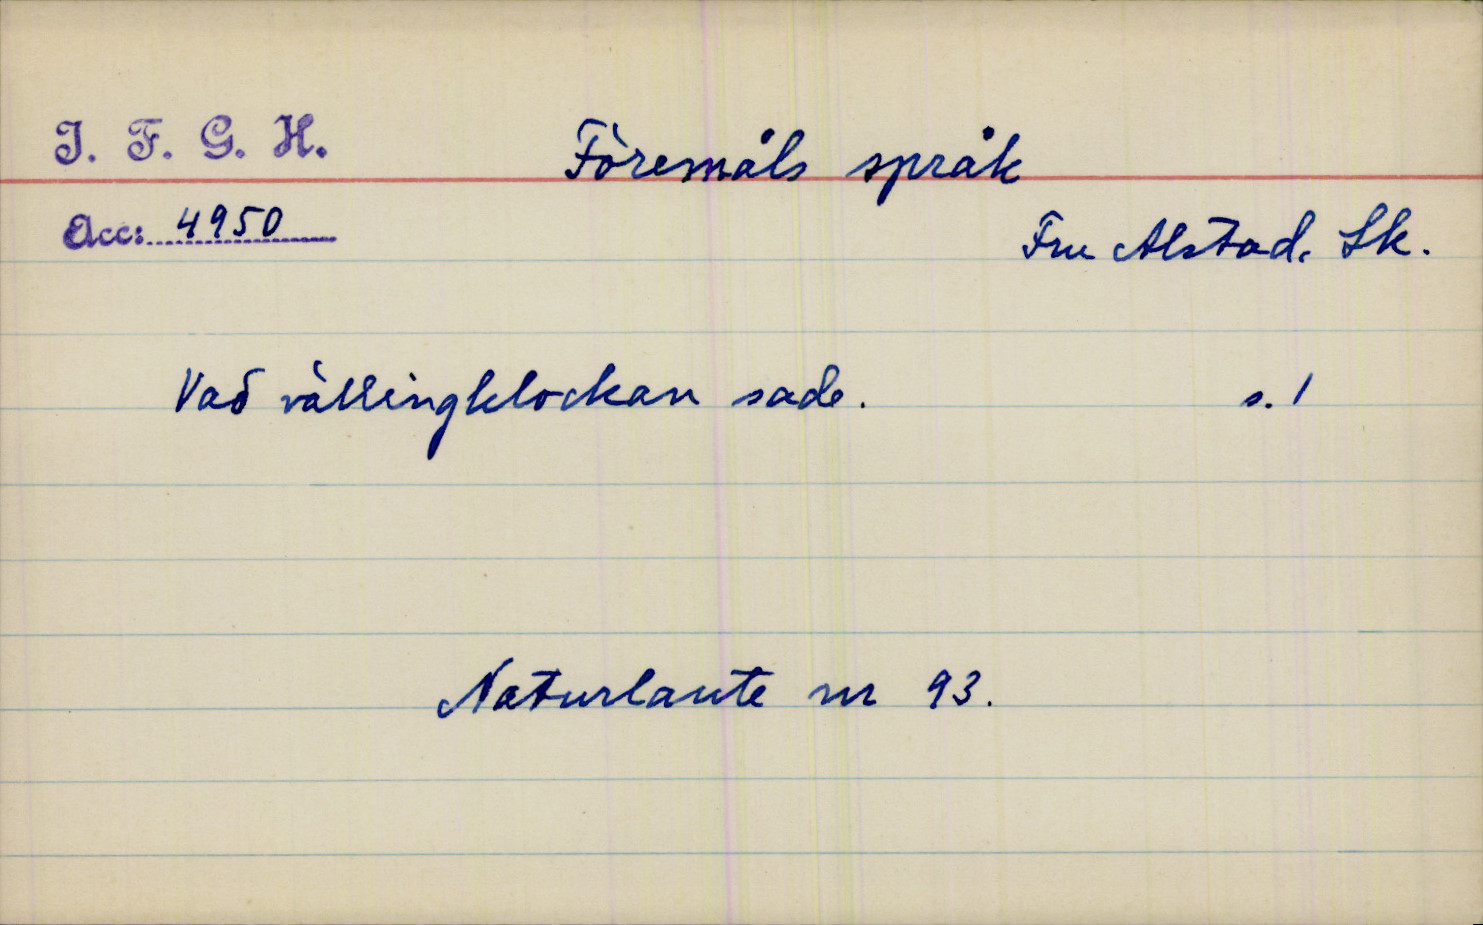 I. F. G. H.
Föremåls språk
Acc: 4950
Fru Alstad. Sk.
Vad vällingklockan sade. s. 1
Naturlaute nr 93.